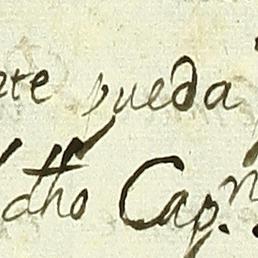 ete pueda
dho Capⁿ.